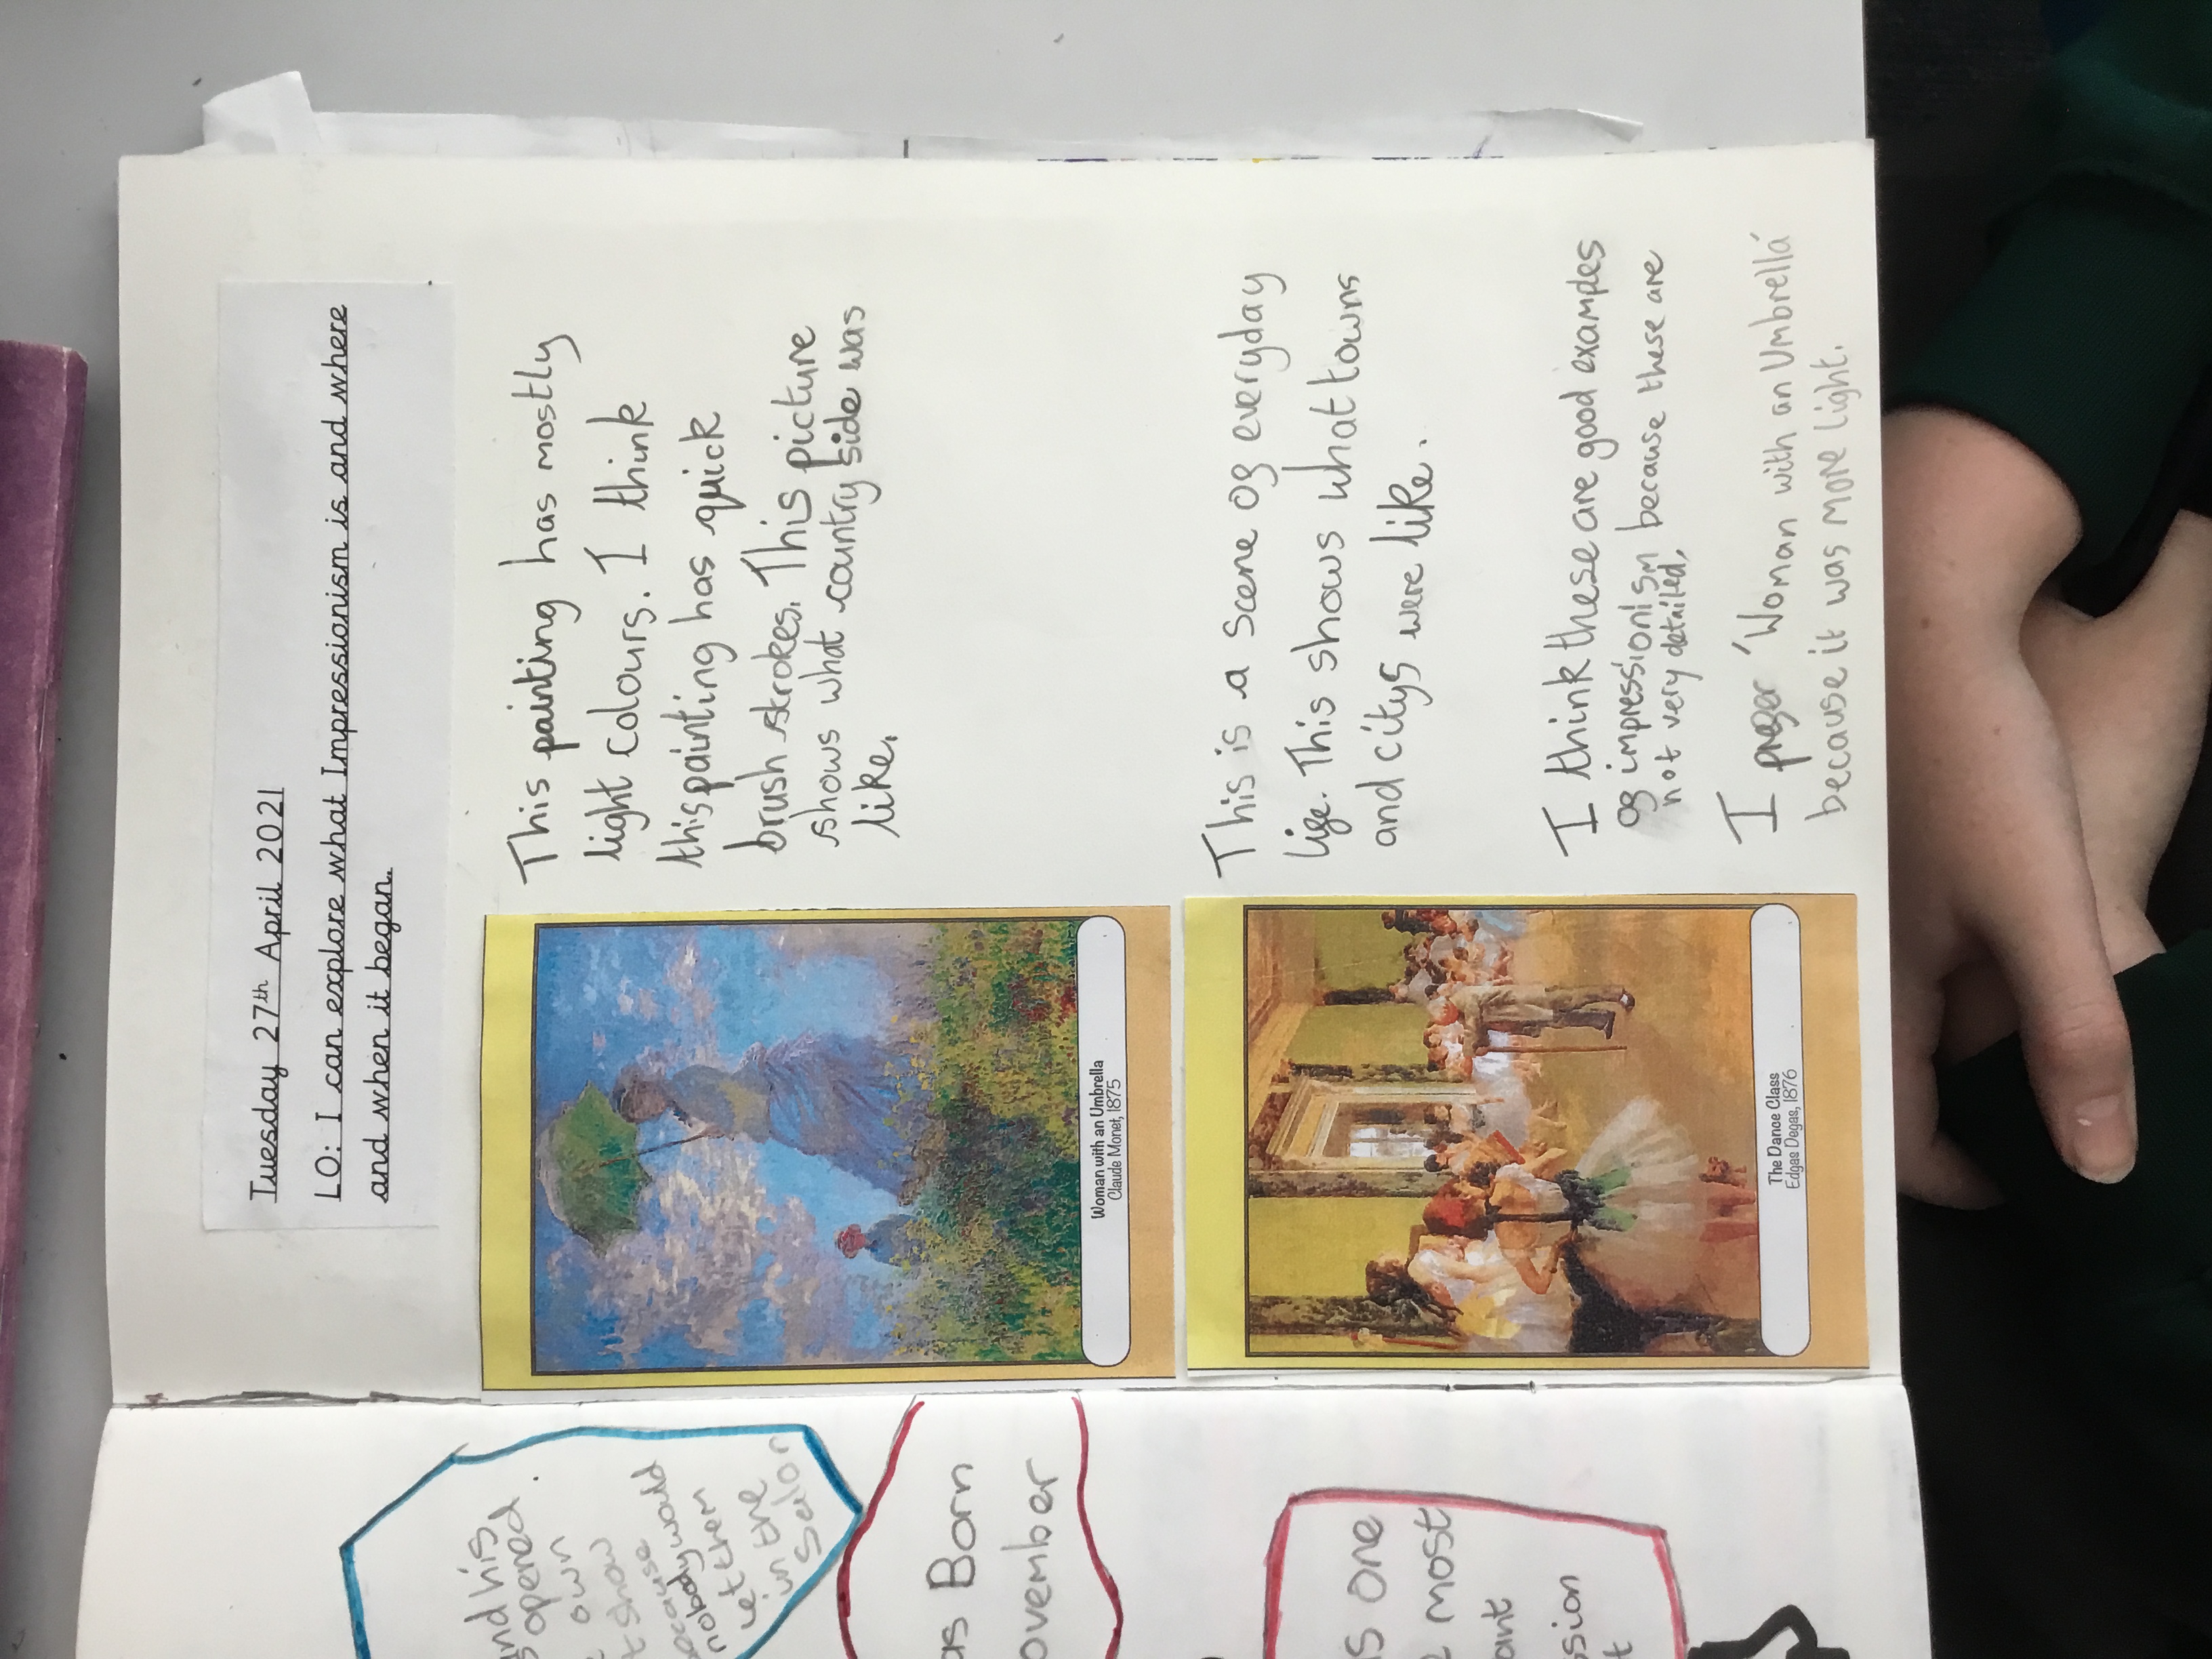 Tuesday 27th April 2021
LO: I can explore what Impressionism is and where
and when it began.
This painting has mostly
light colours. I think
this painting has quick
brush strokes. This picture
shows what country side was
like.
Woman with an Umbrella
Claude Monet, 1875
This is a scene of everyday
life. This shows what towns
and citys were like.
The Dance Class
Edgas Degas, 1876
I think these are good examples
of impressionism because these are
not very detailed.
I prefer 'Woman with an Umbrella'
because it was more light.
and his
opened
own
show
because
nobody would
let them
in the
Salon
as Born
ovember
s one
most
ant
ssion
t